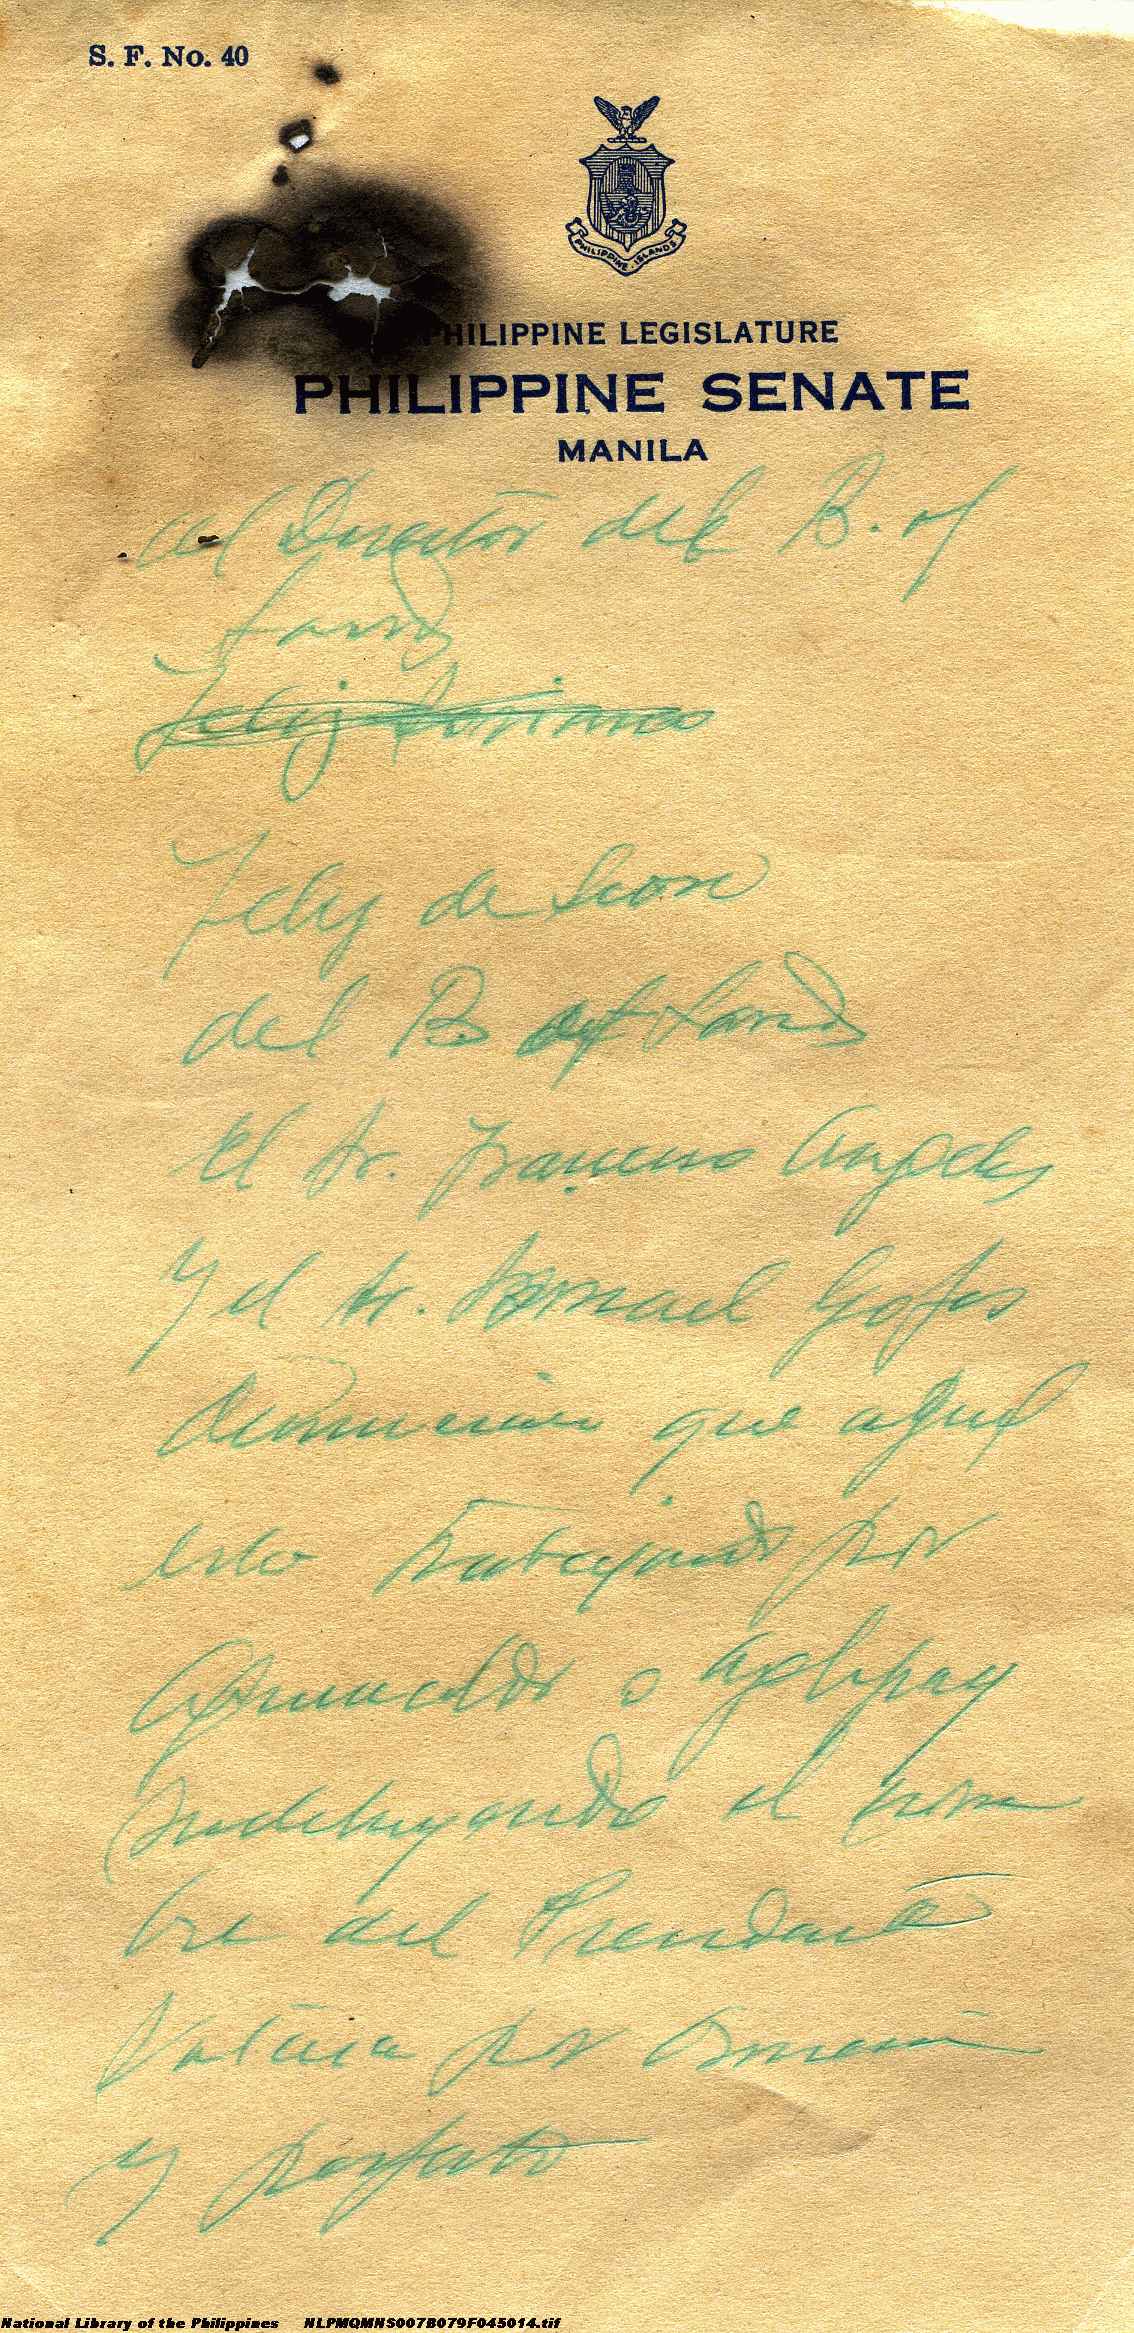 S. F. No. 40
PHILIPPINE ISLANDS
PHILIPPINE LEGISLATURE
PHILIPPINE SENATE
MANILA
al Director del B. of
Lands
Felix
Felix de Leon
del B of Lands
El Sr. Francisco Angeles
y el Sr. Ismael
denuncian que aquel
esta trabajando por
Aguinaldo o Aglipay
y el nom
bre del Presidente
por Osmeña
y
National Library of the Philippines NLPMQMNS007B079F045014.tif